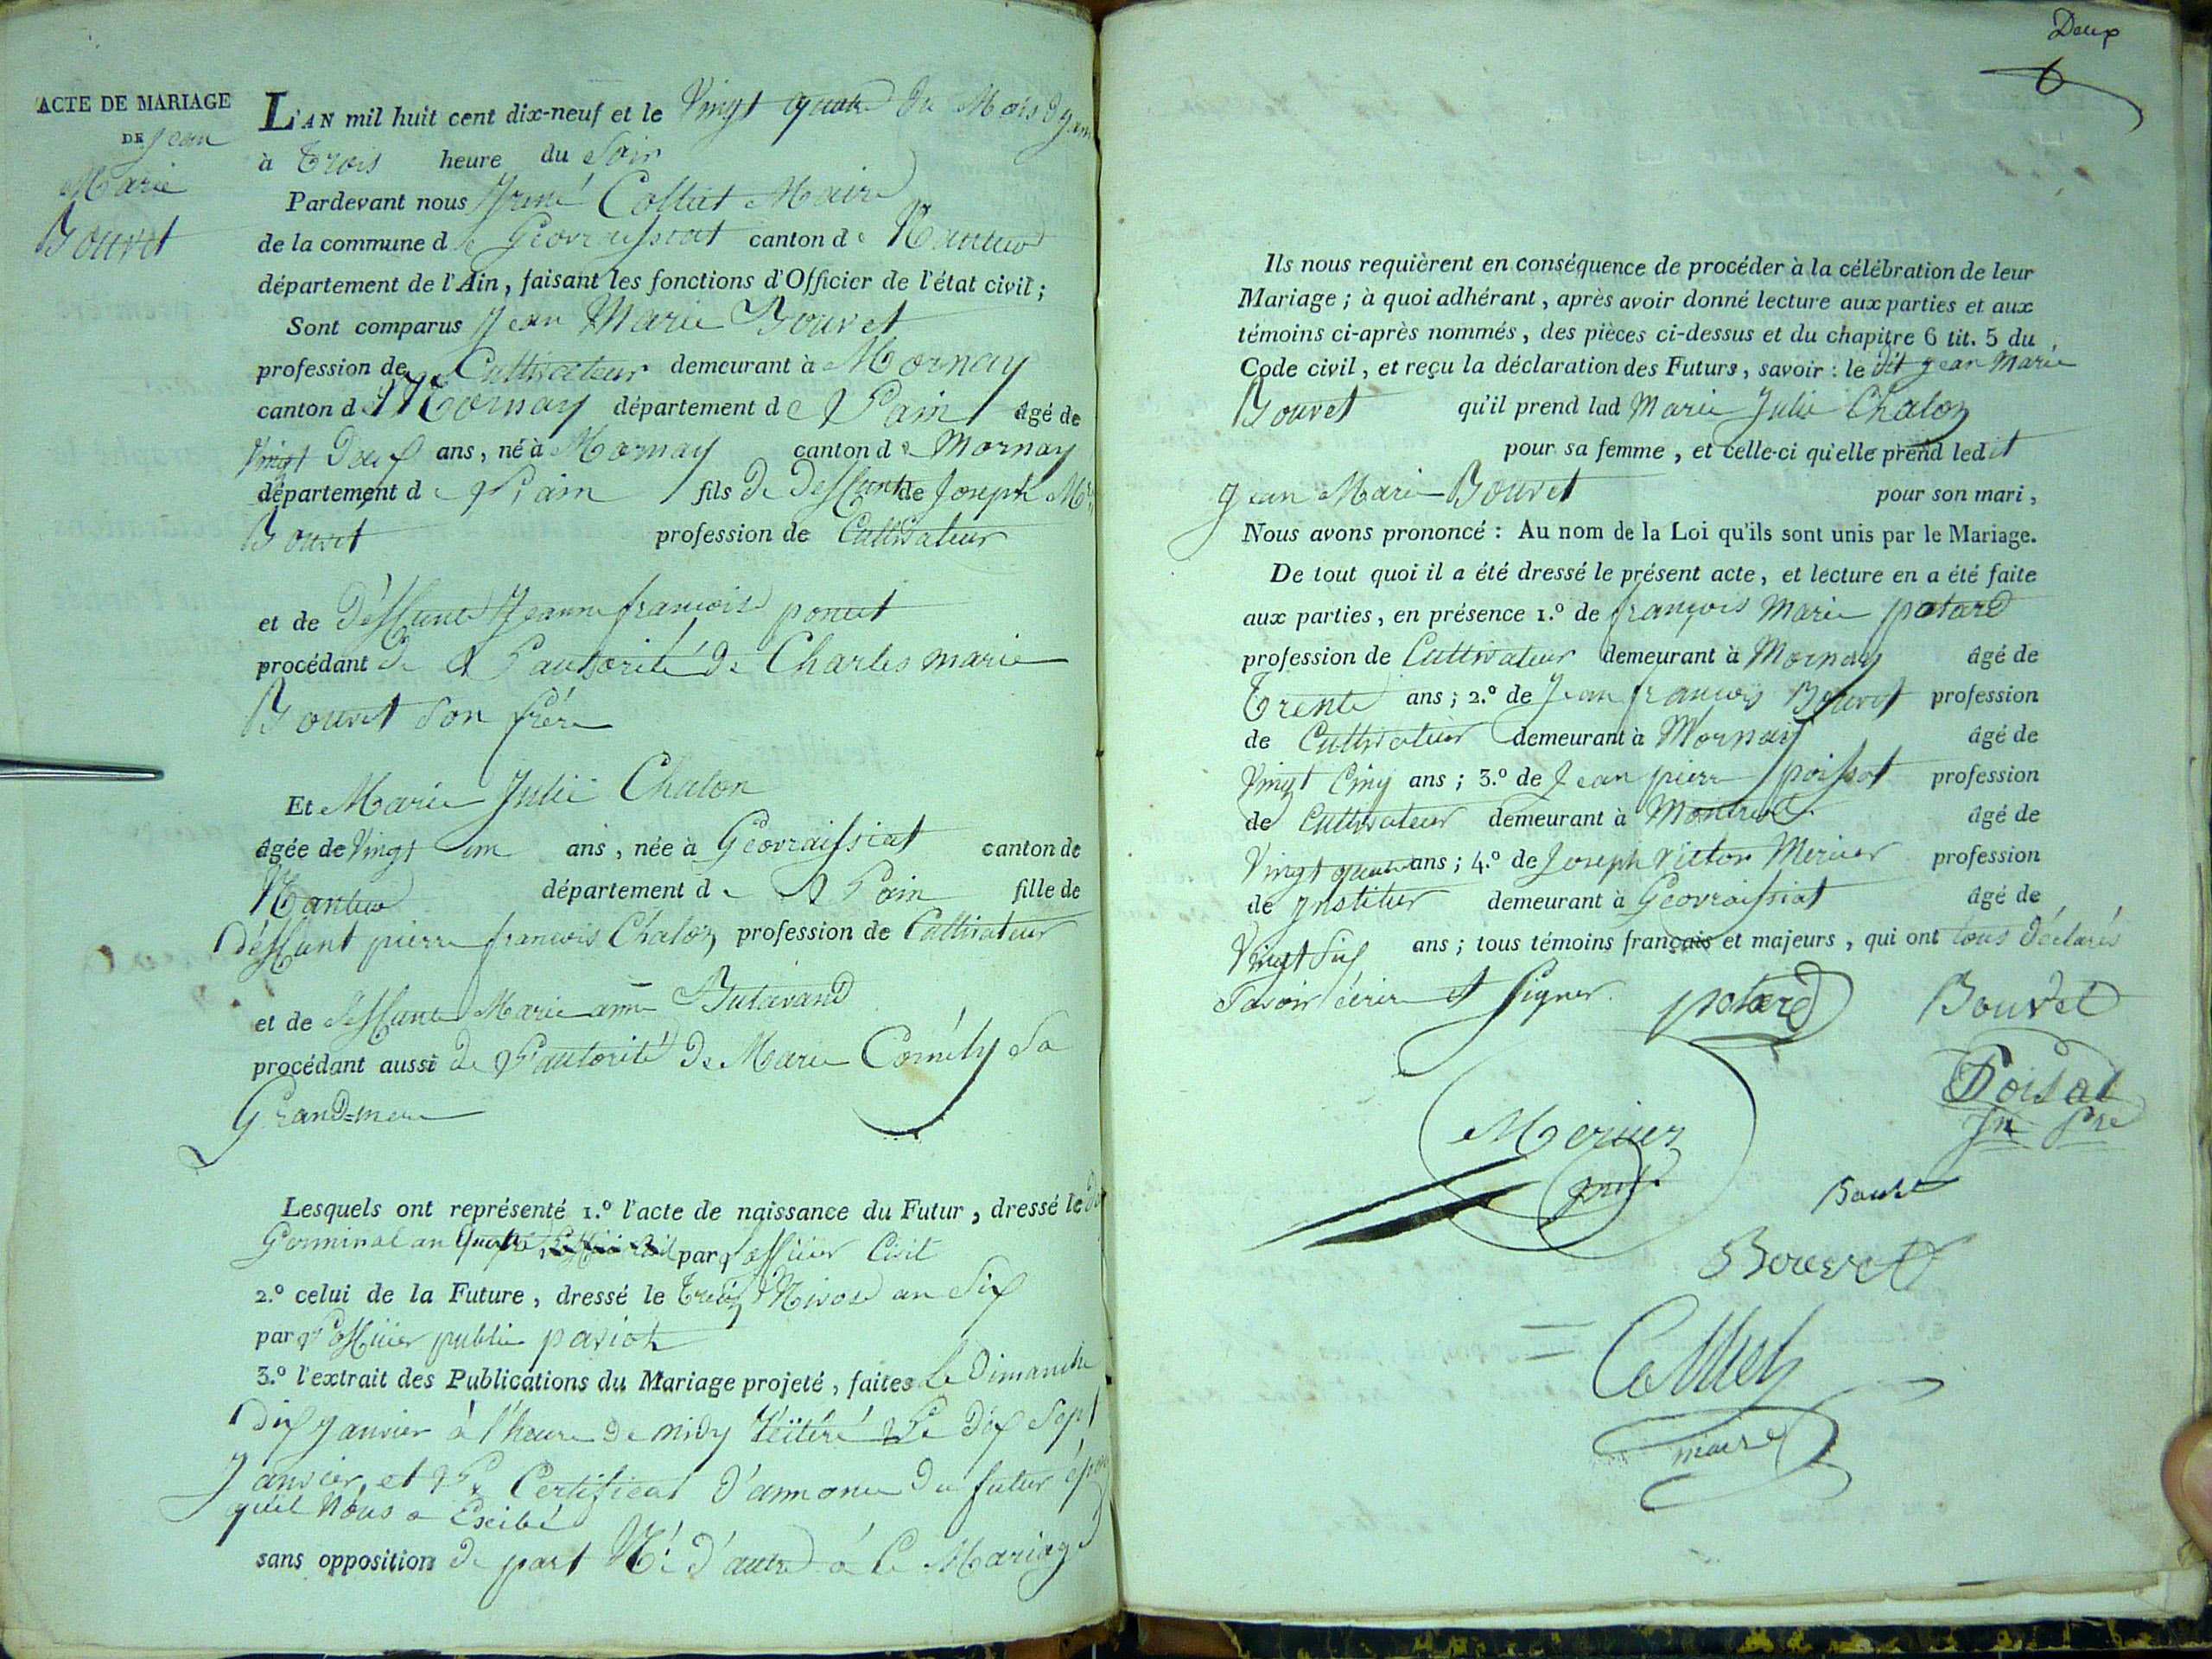 Deux
6
ACTE DE MARIAGE
DE jean
Marie
Bouvet
L'AN mil huit cent dix-neuf et le Vingt quatre du Mois de janv
à Trois heure du Soir
Pardevant nous Irené Colliet Maire
de la commune de Géovraissiat canton de Nantua
département de l'Ain, faisant les fonctions d'Officier de l'état civil;
Sont comparus Jean Marie Bouvet
profession de Cultivateur demeurant à Mornay
canton de Mornay département de l'ain âgé de
Vingt Deux ans, né à Mornay canton de Mornay
département de l'ain fils de deffunt de Joseph Mie
Bouvet profession de Cultivateur
et de deffunte Jeanne francoise poncet
procédant de l'autorité de Charles marie
Bouvet Son frére
Et Marie Julie Chalon
âgée de Vingt un ans, née à Géovraissiat canton de
Nantua département de l'ain fille de
deffunt pierre francois Chalon profession de Cultivateur
et de deffunte Marie anne Butavand
procédant aussi de l'autorité de Marie Comély Sa
Grand=mere
Lesquels ont représenté 1.º l'acte de naissance du Futur, dressé le
Germinal an quatre par l'officier Civil
2.º celui de la Future, dressé le treize Nivose an Six
par l'officier public pariot
3.º l'extrait des Publications du Mariage projeté, faites Le Dimanche
Dix janvier à l'heure de midy Réitéré Le dix Sept
Janvier, et Le Certificat d'annonce du futur
quil Nous a Exibé
sans opposition de part Ni d'autre à Ce Mariage
Ils nous requièrent en conséquence de procéder à la célébration de leur
Mariage; à quoi adhérant, après avoir donné lecture aux parties et aux
témoins ci-après nommés, des pièces ci-dessus et du chapitre 6 tit. 5 du
Code civil, et reçu la déclaration des Futurs, savoir: le dit jean Marie
Bouvet qu'il prend lad Marie Julie Chalon
pour sa femme, et celle-ci qu'elle prend ledit
jean Marie Bouvet pour son mari,
Nous avons prononcé: Au nom de la Loi qu'ils sont unis par le Mariage.
De tout quoi il a été dressé le présent acte, et lecture en a été faite
aux parties, en présence 1.º de françois Marie potard
profession de Cultivateur demeurant à Mornay âgé de
Trente ans; 2.º de Jean francois Bouvet profession
de Cultivateur demeurant à Mornay âgé de
Vingt Cinq ans; 3.º de Jean pierre poissat profession
de Cultivateur demeurant à Montreal âgé de
Vingt quatre ans; 4.º de Joseph Victor Mercier profession
de jnstituer demeurant à Geovraissiat âgé de
Vingt Six ans; tous témoins français et majeurs, qui ont tous déclarés
Savoir écrire et Signer. potard Bouvet
Poisat
Jn Pre
Mercier
Bouvet
Bouvet
Colliet
maire